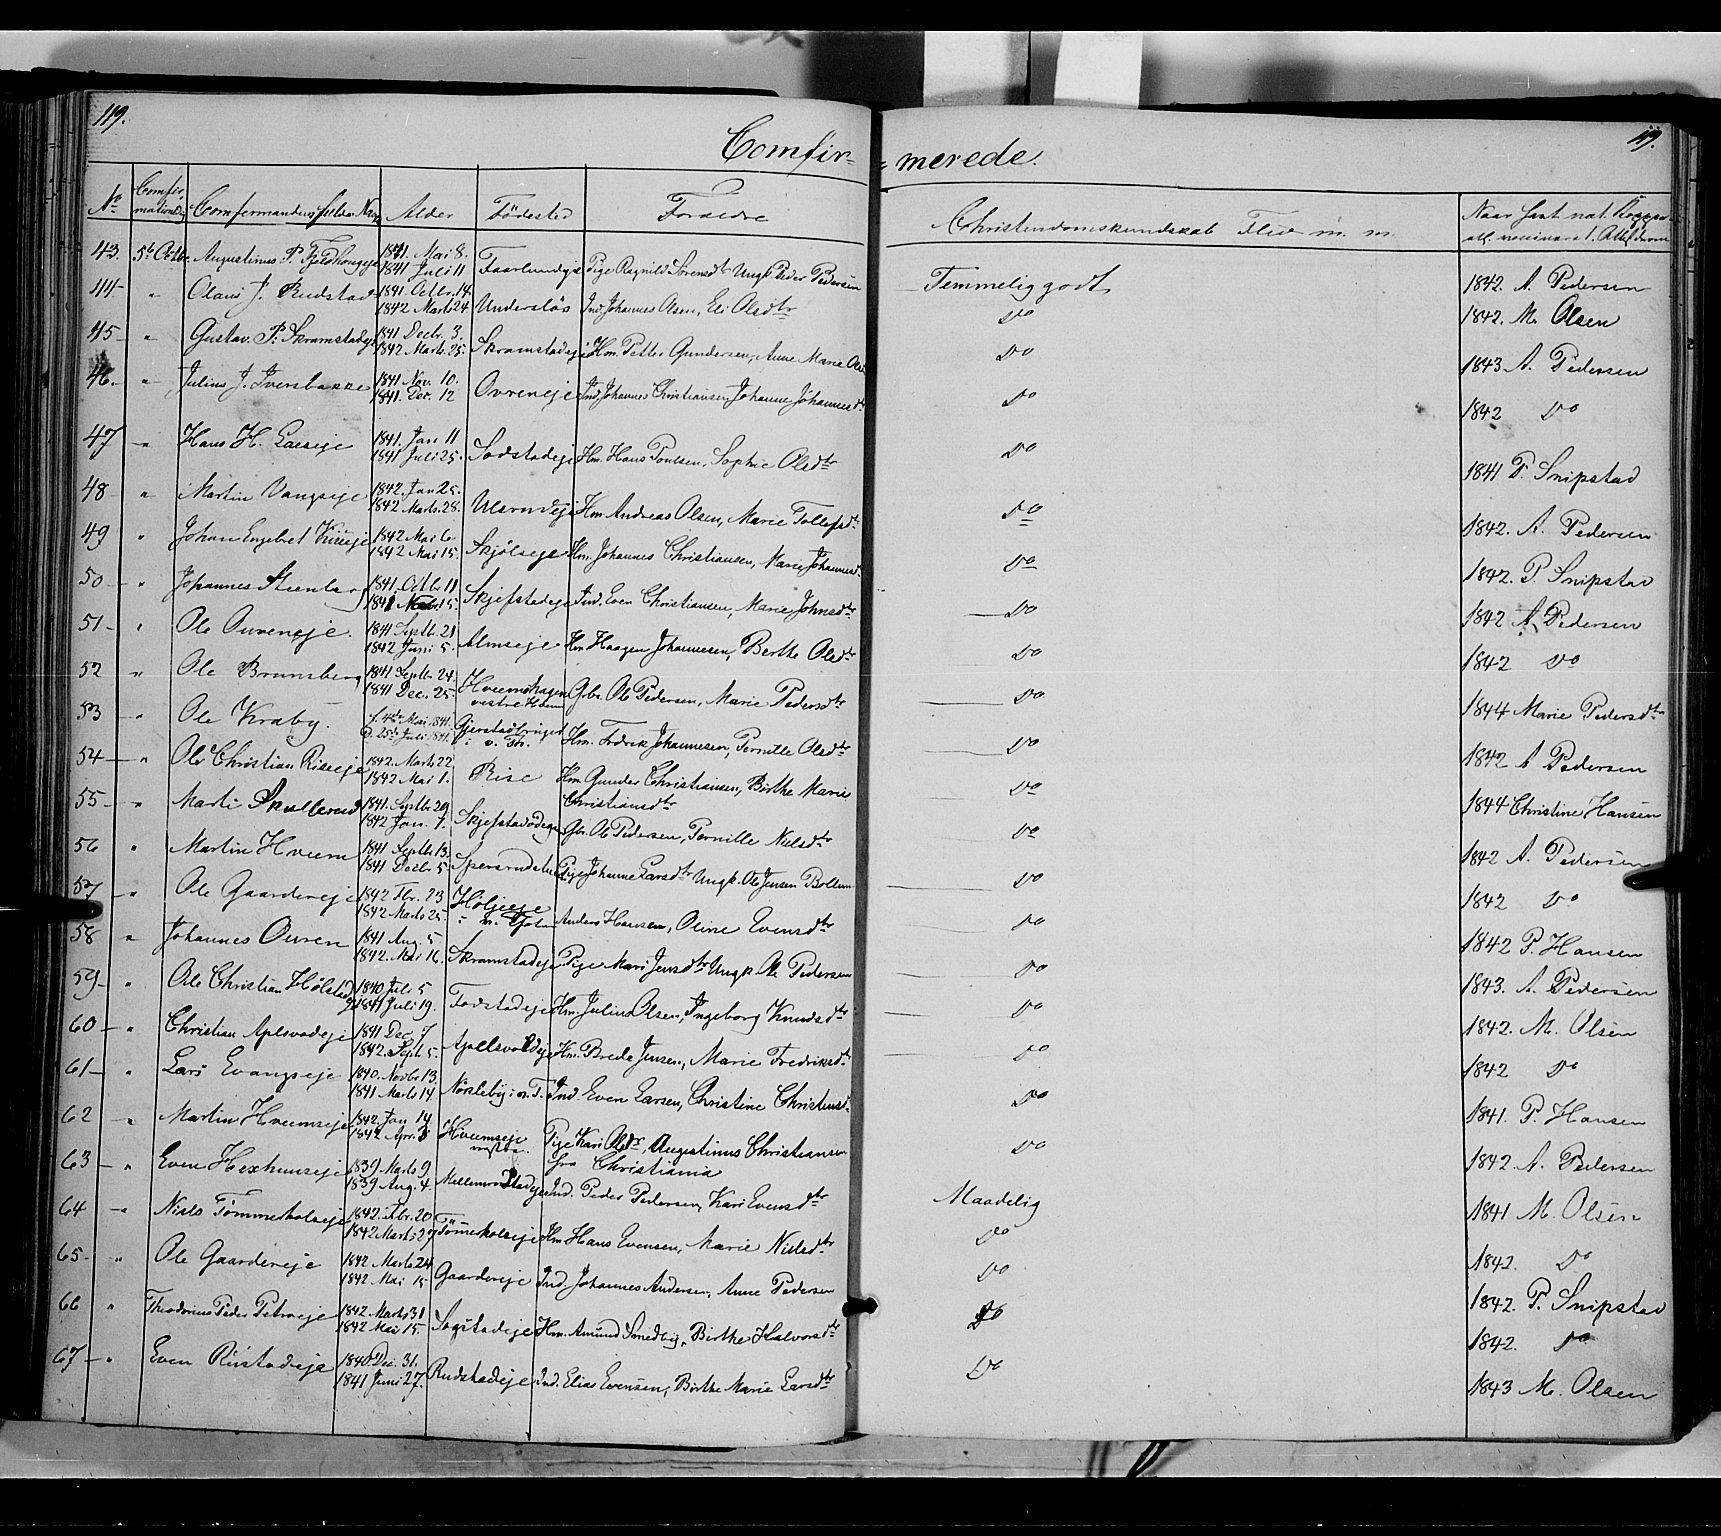 119.
119.
Comfir-
-merede.
No
Comfir-
mationsdag
Comfermandens fulde Navn
Alder
Födested
Forældre
Christendomskundskab Flid m. m.
43. 5te Octbr. Augustinus P. Fjeldhougeje 1841. Mai 8. Faarlundeje Pige Ragnild Sørensdtr Ungk. Peder Pedersen Temmelig godt 1842. A. Pedersen
1841 Juli 11
44 " Olaus J. Rudstad 1841 Octbr. 14. Undersløs Ind. Johannes Olsen, Eli Olsdtr Do 1842. M. Olsen
1842 Marts 24
45 " Gustav. P. Skramstadeje 1841 Decbr. 3. Skramstadeje Hm. Petter Gundersen, Anne Marie Ols Do 1843 A. Pedersen
1842 Marts. 25.
46. " Julius J. Iversbakke 1841 Nov. 10. Ovreneje Ind. Johannes Christiansen Johanne Johannesdtr Do 1842 Do
1841. Dec. 12
47 " Hans H. Laeseje 1841. Jan 11 Sodstadeje Hm. Hans Poulsen, Sophie Olsdtr Do 1841 P. Snipstad
1841 Juli 25.
48 " Martin Vangseje 1842. Jan 25. Ulsrudeje Hm. Andreas Olsen, Marie Tollefsdtr Do 1842. A. Pedersen
1842 Marts. 28.
49 " Johan Engebret Kiseje 1842 Mai 6. Skjølseje Hm. Johannes Christiansen, Marie Johannesd. Do 1842. P. Snipstad
1842 Mai 15.
50 " Johannes Steenberg 1841. Octbr 11 Skjefstadeje Ind. Even Christiansen, Marie Johnsdtr Do 1842 A. Pedersen
1841 Novbr. 15.
51 " Ole Oureneje. 1841 Septbr. 21 Almseje Hm Haagen Johannesen, Berthe Olsdtr Do 1842 Do
1842 Juni 5.
52 " Ole Brunsberg 1841 Septbr. 24. Hveemshagen Gbr. Ole Pedersen, Marie Pedersdtr Do 1844 Marie Pedersdtr
1841 Dec. 25. vestre Hdem
53 " Ole Kraby. f. 4de Mai 1841. Gjerstadbringed Hm. Fredrik Johannesen, Pernille Olsdtr Do 1842 A Pedersen
d. 25de Juli 1841. i v. Th.
54 " Ole Christian Riseeje 1842. Marts 22 Rise Hm Gunder Christiansen, Birthe Marie Do 1844 Christine Hansen
1842 Mai 1. Christiansdtr
55 " Marti Skullerud 1841. Septbr 29 Skjefstadødegn Gbr. Ole Pedersen, Pernille Nielsdtr Do 1842 A. Pedersen
1842 Jan. 7.
56 " Martin Hveem 1841 Septbr 13. Pige Johanne Larsdtr Ungk. Ole Jensen Bollum Do 1842 Do
1841 Decbr 5.
57 " Ole Gaardereje 1842 Fbr. 23 Holjeeje Anders Hansen, Oline Evensdtr Do 1842 P. Hansen
1842 Marts 25.
58 " Johannes Ouren 1841 Aug. 5 Skramstadeje Pige Mari Jensdtr Ungk. Ole Pedersen Do 1843. A. Pedersen
1842. Mai 16.
59 " Ole Christian Hølstad 1840 Juli 5 Fodstadeje Hm. Julius Olsen, Ingeborg Knudsdtr Do 1842. M. Olsen
1841 Juli 19.
60 " Christian Aplsvodeje 1841 Dec. 7 Apelsvoldeje Hm. Brede Jensen, Marie Fredriksdtr Do 1842 Do
1842. Sept. 5.
61 " Lars Evangseje 1840. Novbr 13. Nøsleby i v. T. Ind. Even Larsen, Christine Christensd. Do 1841. P. Hansen
1841 Marts 14
62 " Martin Hveemseje 1842. Jan 14 Hveemseje Pige Kari Olsdr. Augustinus Christiansen Do 1842 A. Pedersen
1842 Apr. 3 fra Christiania
63 " Even Hexhumseje 1839 Marts 9 Ind. Peder Pedersen, Kari Evensdtr Maadelig 1841 M. Olsen
1839 Aug. 4.
64 " Niels Tømmerholseje 1842. Fbr. 20 Tømerholseje Hm Hans Evensen, Marie Nielsdtr Do 1842. Do
1842 Marts 27
65 " Ole Gaardereje 1842 Marts 24 Gaardereje Ind. Johannes Andersen, Anne Pedersen Do 1842. P. Snipstad
1842. Mai 15
66 " Theodorius Peder Petreeje 1842. Marts 31 Sogstadeje Hm. Amund Smedbÿ, Birthe Halvorsdtr Do 1842. Do
1842 Mai 15.
67 " Even Rustadeje 1840 Dec. 31. Rudstadeje Ind. Elias Evensen, Birthe Marie Larsdtr Do 1843 M. Olsen
1841 Juni 27.